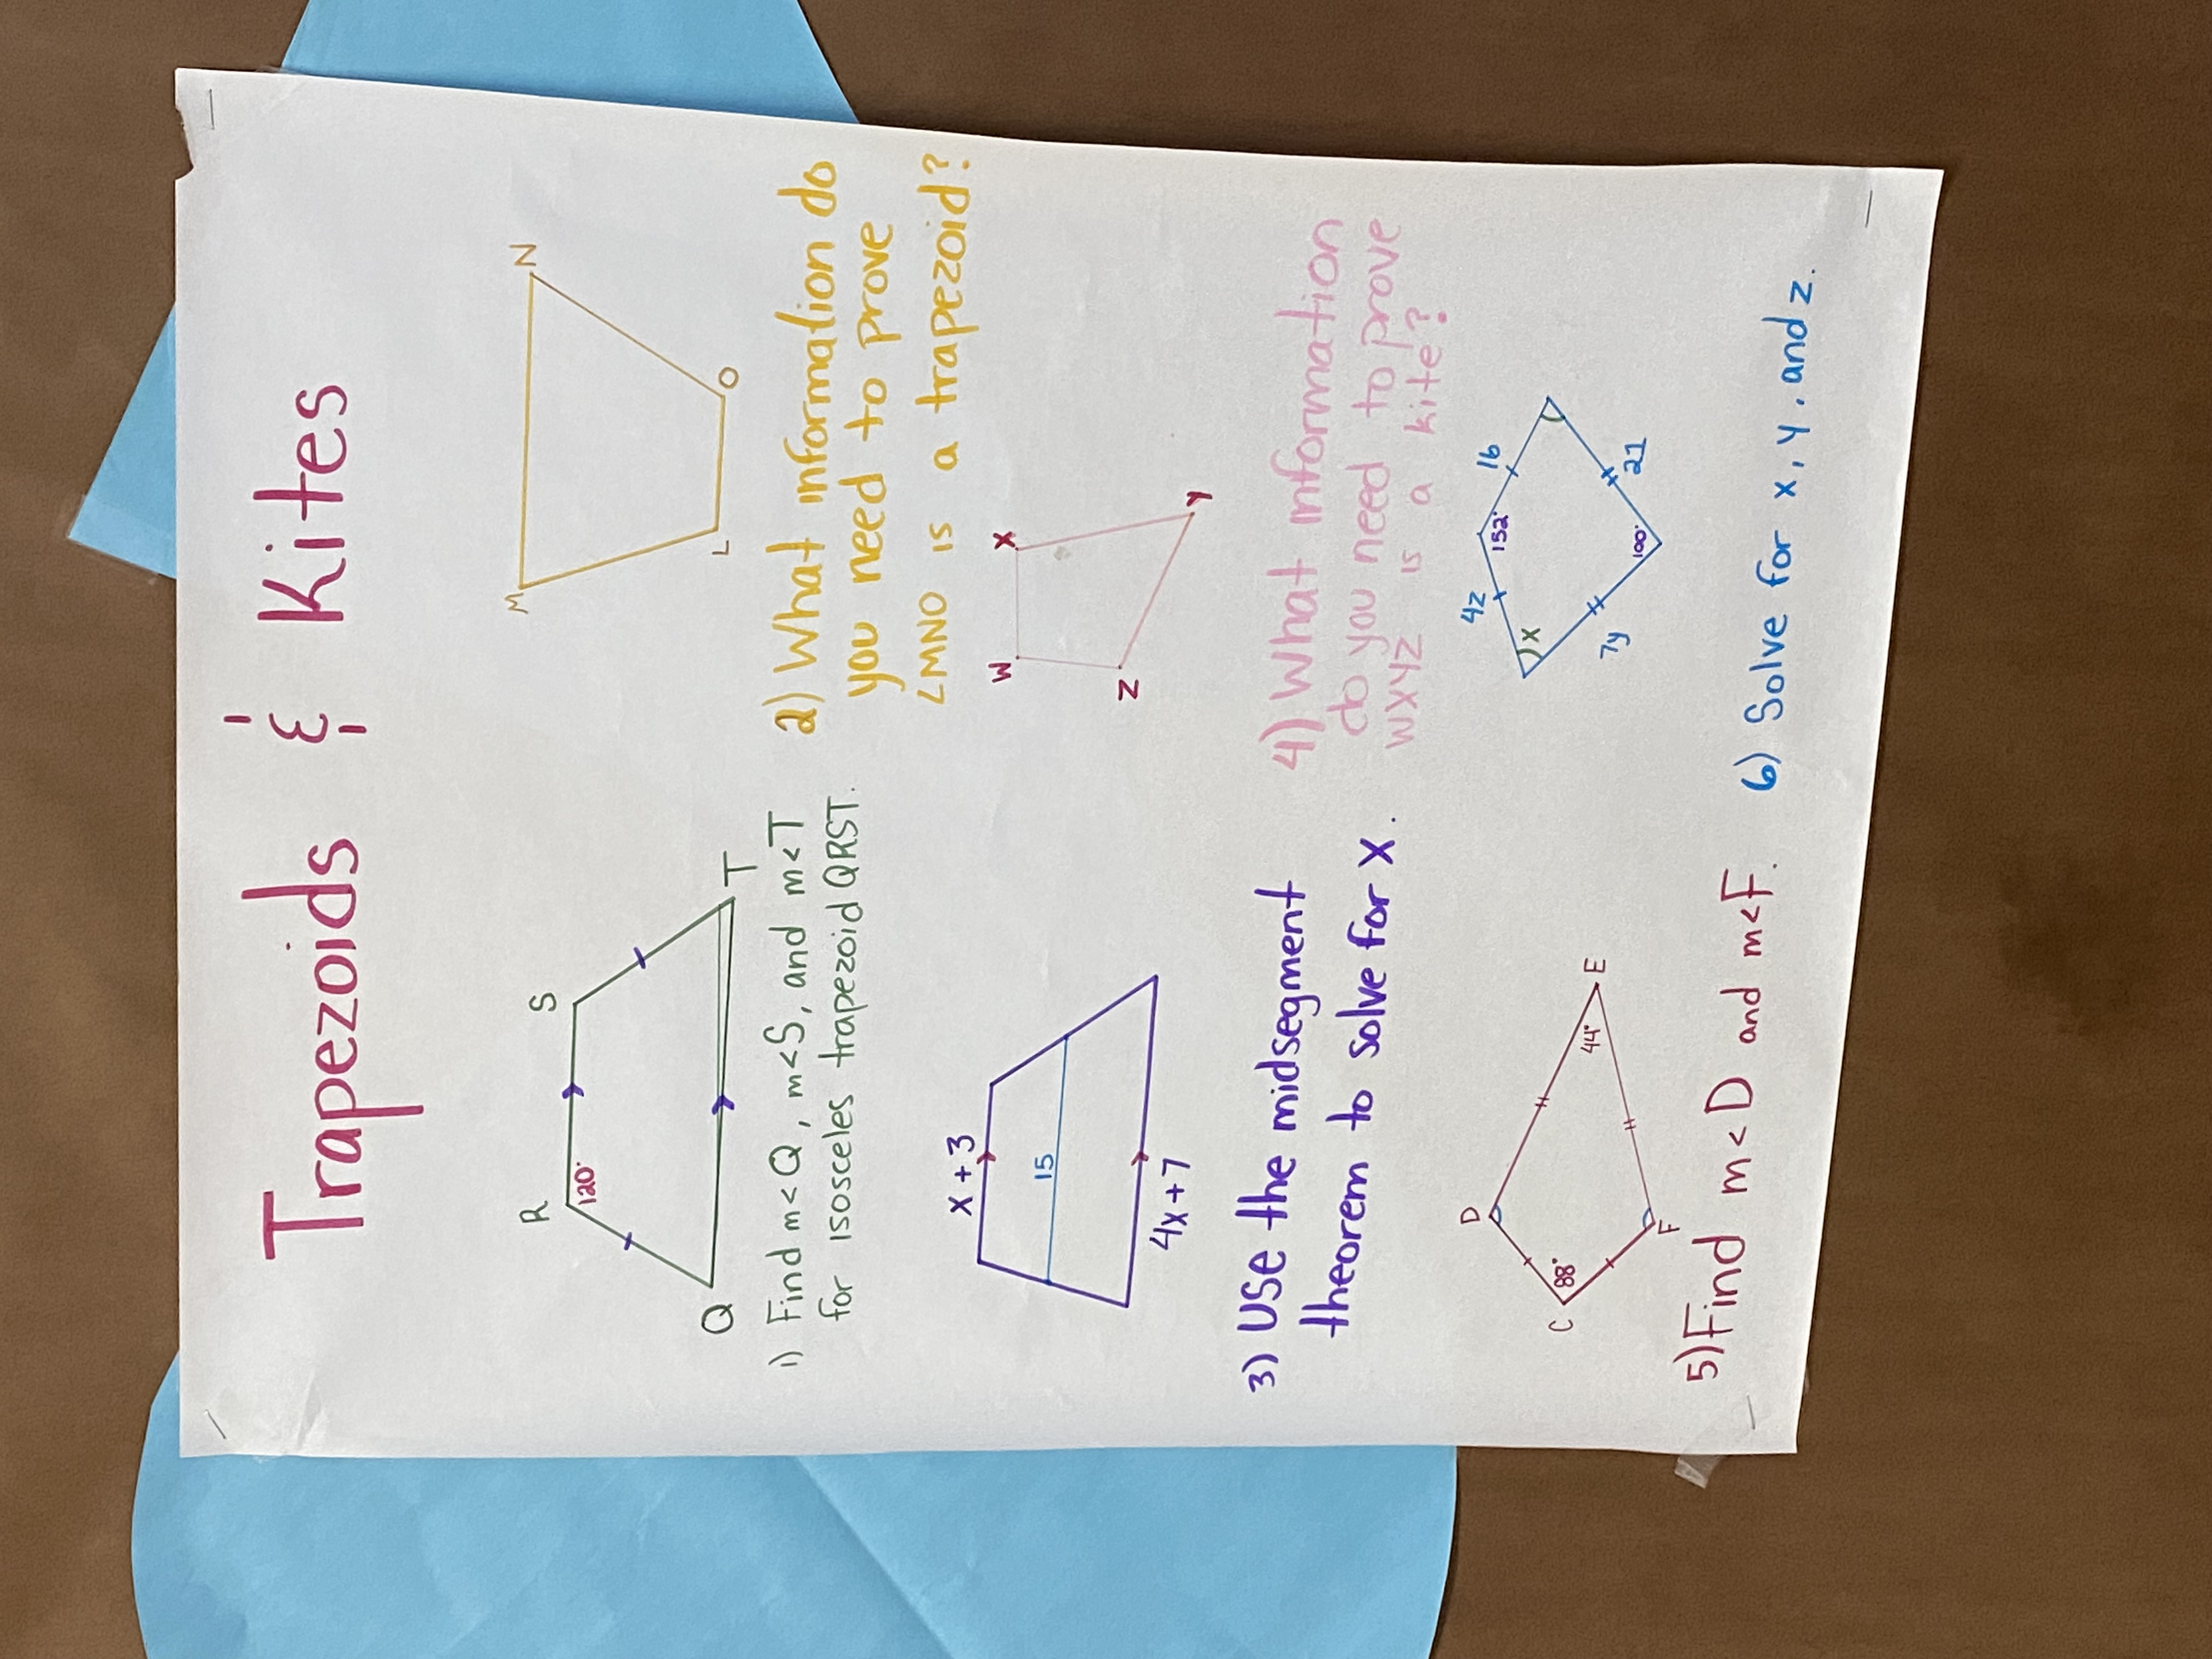 Trapezoids & Kites
R
S
120°
Q
T
1) Find m<Q, m<S, and m<T
for isosceles trapezoid QRST.
M
N
L
O
2) What information do
you need to prove
LMNO is a trapezoid?
x+3
15
4x+7
3) Use the midsegment
theorem to solve for x.
W
X
Z
Y
4) What information
do you need to prove
WXYZ is a kite?
D
C
88°
44°
E
F
5) Find m<D and m<F.
4z
16
152°
x
100°
7y
21
6) Solve for x, y, and z.